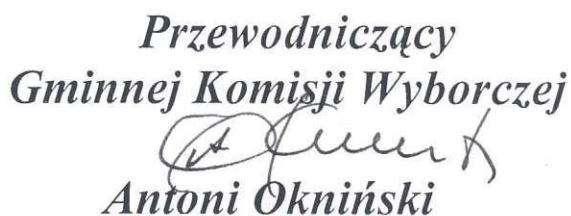 Przewodniczący
Gminnej Komisji Wyborczej
Antoni Okniński